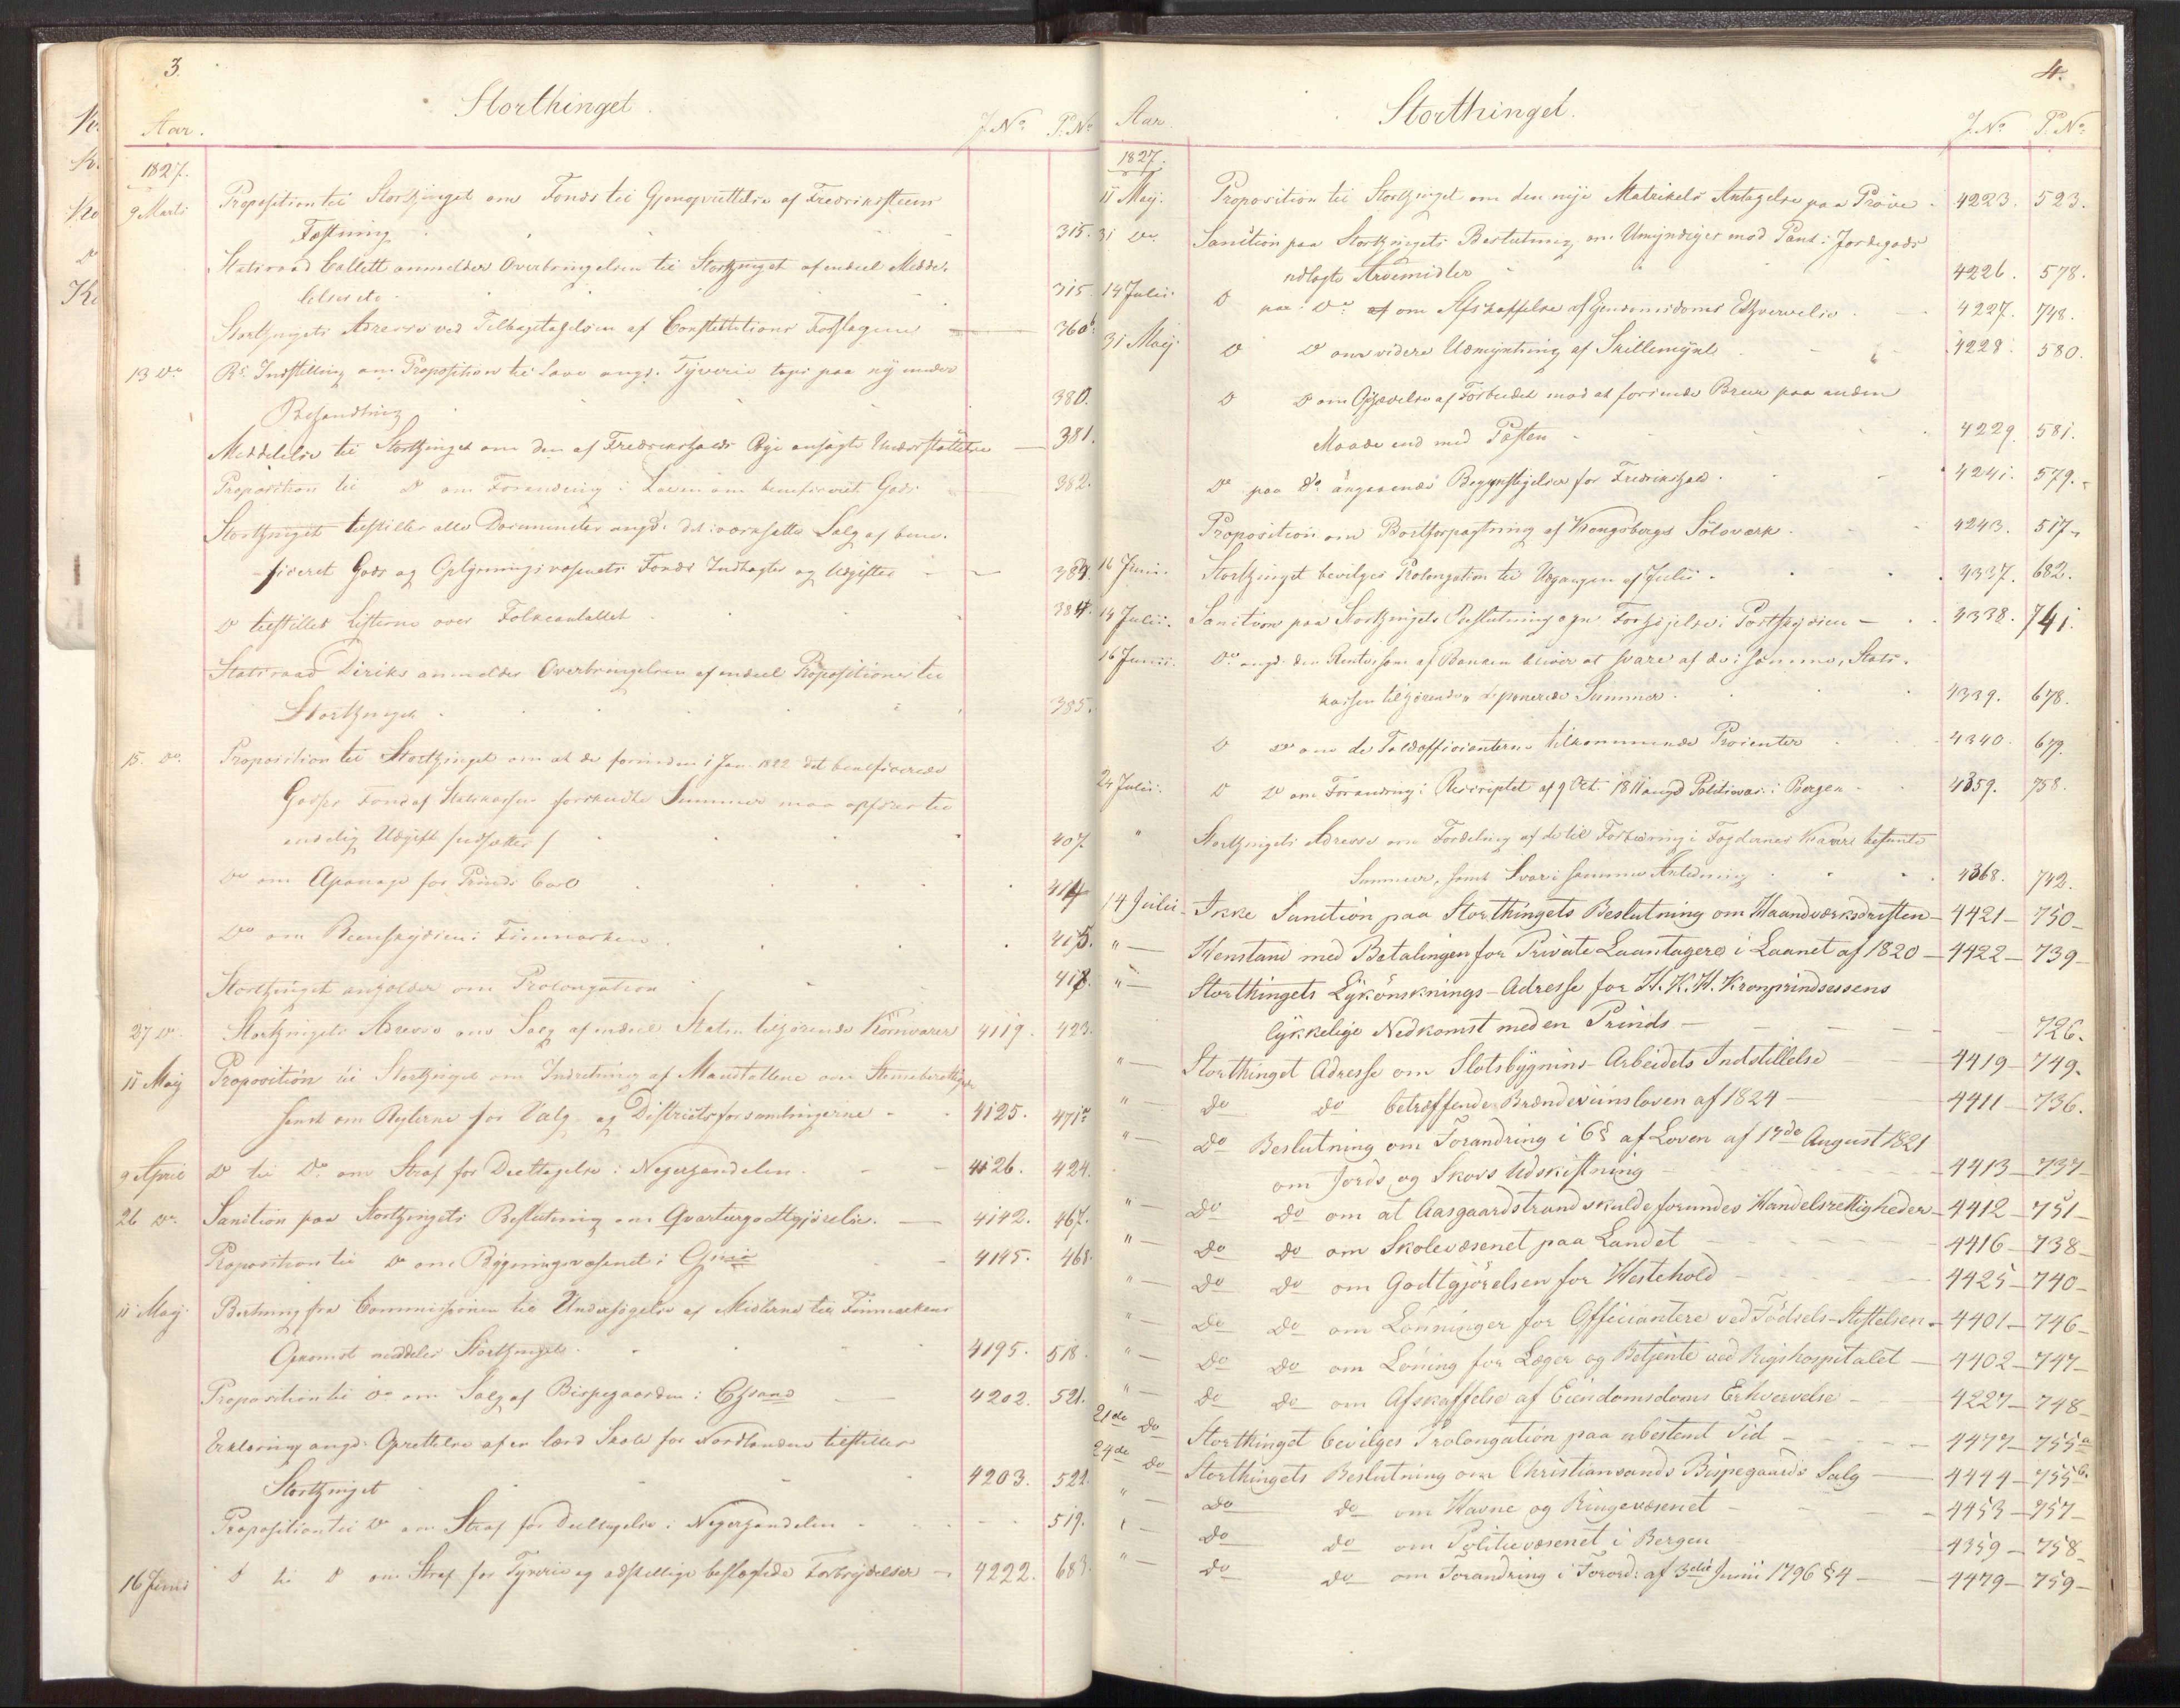 3.
Storthinget.
Aar. J. No. P. No.
1827.
9 Marts Proposition til Storthinget om Fonds til Gjenoprettelse af Fredrikssteens
Fæstning 315.
Statsraad Collett anmelder Overbringelsen til Storthinget af endeel Medde-
lelser 315.
Storthingets Adresse ved Tilbagetagelsen af Constitutions Forslagene 360b.
13 Do Indstilling om Proposition til Lov angd. Tyverie tages paa ny under
Behandling 380.
Meddelelse til Storthinget om den af Fredrikshalds Bye ansøgte Understøttelse 381.
Proposition til Do om Forandring i Loven om beneficeret Gods 382.
Storthinget tilstilles alle Documenter angd. det iværksatte Salg af bene-
-ficeret Gods og Oplysningsvæsenets Fonds Indtægter og Udgifter 383.
Do tilstilles Listerne over Folkeantallet 384.
Statsraad Diriks anmelder Overbringelsen af endeel Propositioner til
Storthinget 385.
15. Do. Proposition til Storthinget om at de forinden 1 Jan. 1822 det beneficerede
Godses Fond af Statskassen forskudte Summer maa opføres til
endelig Udgift /udsættes/ 407.
Do om Apanage for Prinds Carl 414
Do om Reenskydsen i Finmarken 415.
Storthinget anholder om Prolongation 418.
27 Do. Storthingets Adresse om Salg af endeel Staten tilhørende Kornvarer 4119. 423.
11 Maij Proposition til Storthinget om Indretning af Mandtallene over Stemmeberettigede
samt om Reglerne for Valg- og Districtsforsamlingerne 4125. 471a
9 April Do til Do. om Straf for Deeltagelse i Negerhandelen 4126. 424.
26 Do. Sanction paa Storthingets Beslutning om Qvarteergodtgjørelse. 4142. 467.
Proposition til Do om Bygningsvæsenet i 4145. 468.
11 Maij Beretning fra Commissionen til Undersøgelse af Midlerne til Finmarkens
Opkomst meddeles Storthinget 4195. 518.
Proposition til Do om Salg af Bispegaarden i Chsand 4202. 521.
Erklæring angd. Oprettelse af en lærd Skole for Nordlandene tilstilles
Storthinget 4203. 522.
Proposition til Do om Straf for Deeltagelse i Negerhandelen 519.
16 Junii Do til Do om Straf for Tyverie og adskillige beslægtede Forbrydelser 4222. 683.
4.
Storthinget.
Aar. J. No. P. No.
1827.
11 Maij. Proposition til Storthinget om den nye Matrikels Antagelse paa Prøve 4223. 523.
31 Do. Sanction paa Storthingets Beslutning om Umyndiges mod Pant i Jordegods
udlagte Arvemidler 4226. 578.
14 Julii. Do paa Do. om Afskaffelse af Eiendomsdoms Erhvervelse 4227. 748.
31 Maij. Do Do om videre Udmyntning af Skillemynt 4228. 580.
Do Do om Ophævelse af Forbudet mod at forsende Breve paa anden
Maade end med Posten 4229. 581.
Do paa Do angaaende Begunstigelser for Fredrikshald 4241. 579.
Proposition om Bortforpagtning af Kongsbergs Sølvværk 4243. 517.
16 Junii. Storthinget bevilges Prolongation til Udgangen af Julii 4337. 682.
14 Julii. Sanction paa Storthingets Beslutning om Forhøjelse i Postskydsen 4338. 741.
16 Junii. Do. angd. den Rente som af Banken bliver at svare af de i samme, Stats-
kassen tilhørende, deponerede Summer 4339. 678.
Do Do om de Toldofficianterne tilkommende Procenter 4340. 679.
24 Julii. Do Do om Forandring i Rescriptet af 9 Oct. 1811 angd Politievæs. i Bergen 4359. 758.
" Storthingets Adresse om Fordeling af de til Forbedring i Fogdernes Kaar bestemte
Summer, samt Svar i samme Anledning 4368. 742.
14 Julii Ikke Sanction paa Storthingets Beslutning om Haandværksdriften 4421 750
" Henstand med Betalingen for Private Laantagere i Laanet af 1820 4422 739
" Storthingets Lykønsknings-Adresse for H. K. H. Kronprindsessens
lykkelige Nedkomst med en Prinds 726.
" Storthinget Adresse om Slotsbygnins-Arbeidets Indstillelse 4419 749.
" Do Do betræffende Brændeviinsloven af 1824 4411 736.
" Do Beslutning om Forandring i 6§ af Loven af 17de August 1821
om Jords og Skovs Udskiftning 4413 737
" Do Do om at Aasgaardstrand skulde forundes Handelsrettigheder 4412 751
" Do Do om Skolevæsenet paa Landet 4416 738
" Do Do om Godtgjørelsen for Hestehold 4425 740
" Do Do om Lønninger for Officiantere ved Fødsels-Stiftelsen 4401 746
" Do Do om Løning for Læger og Betjente ved Rigshospitalet 4402 747
" Do Do om Afskaffelse af Eiendomsdoms Erhvervelse 4227 748
21de Do Storthinget bevilges Prolongation paa ubestemt Tid 4477 755a
24de Do Storthingets Beslutning om Christiansands Bispegaards Salg 4444 755b.
" Do Do om Havne og Ringevæsenet 4453 757
" Do Do om Politievæsenet i Bergen 4359 758
" Do Do om Forandring i Forord. af 3die Junii 1796 §4 4479 759